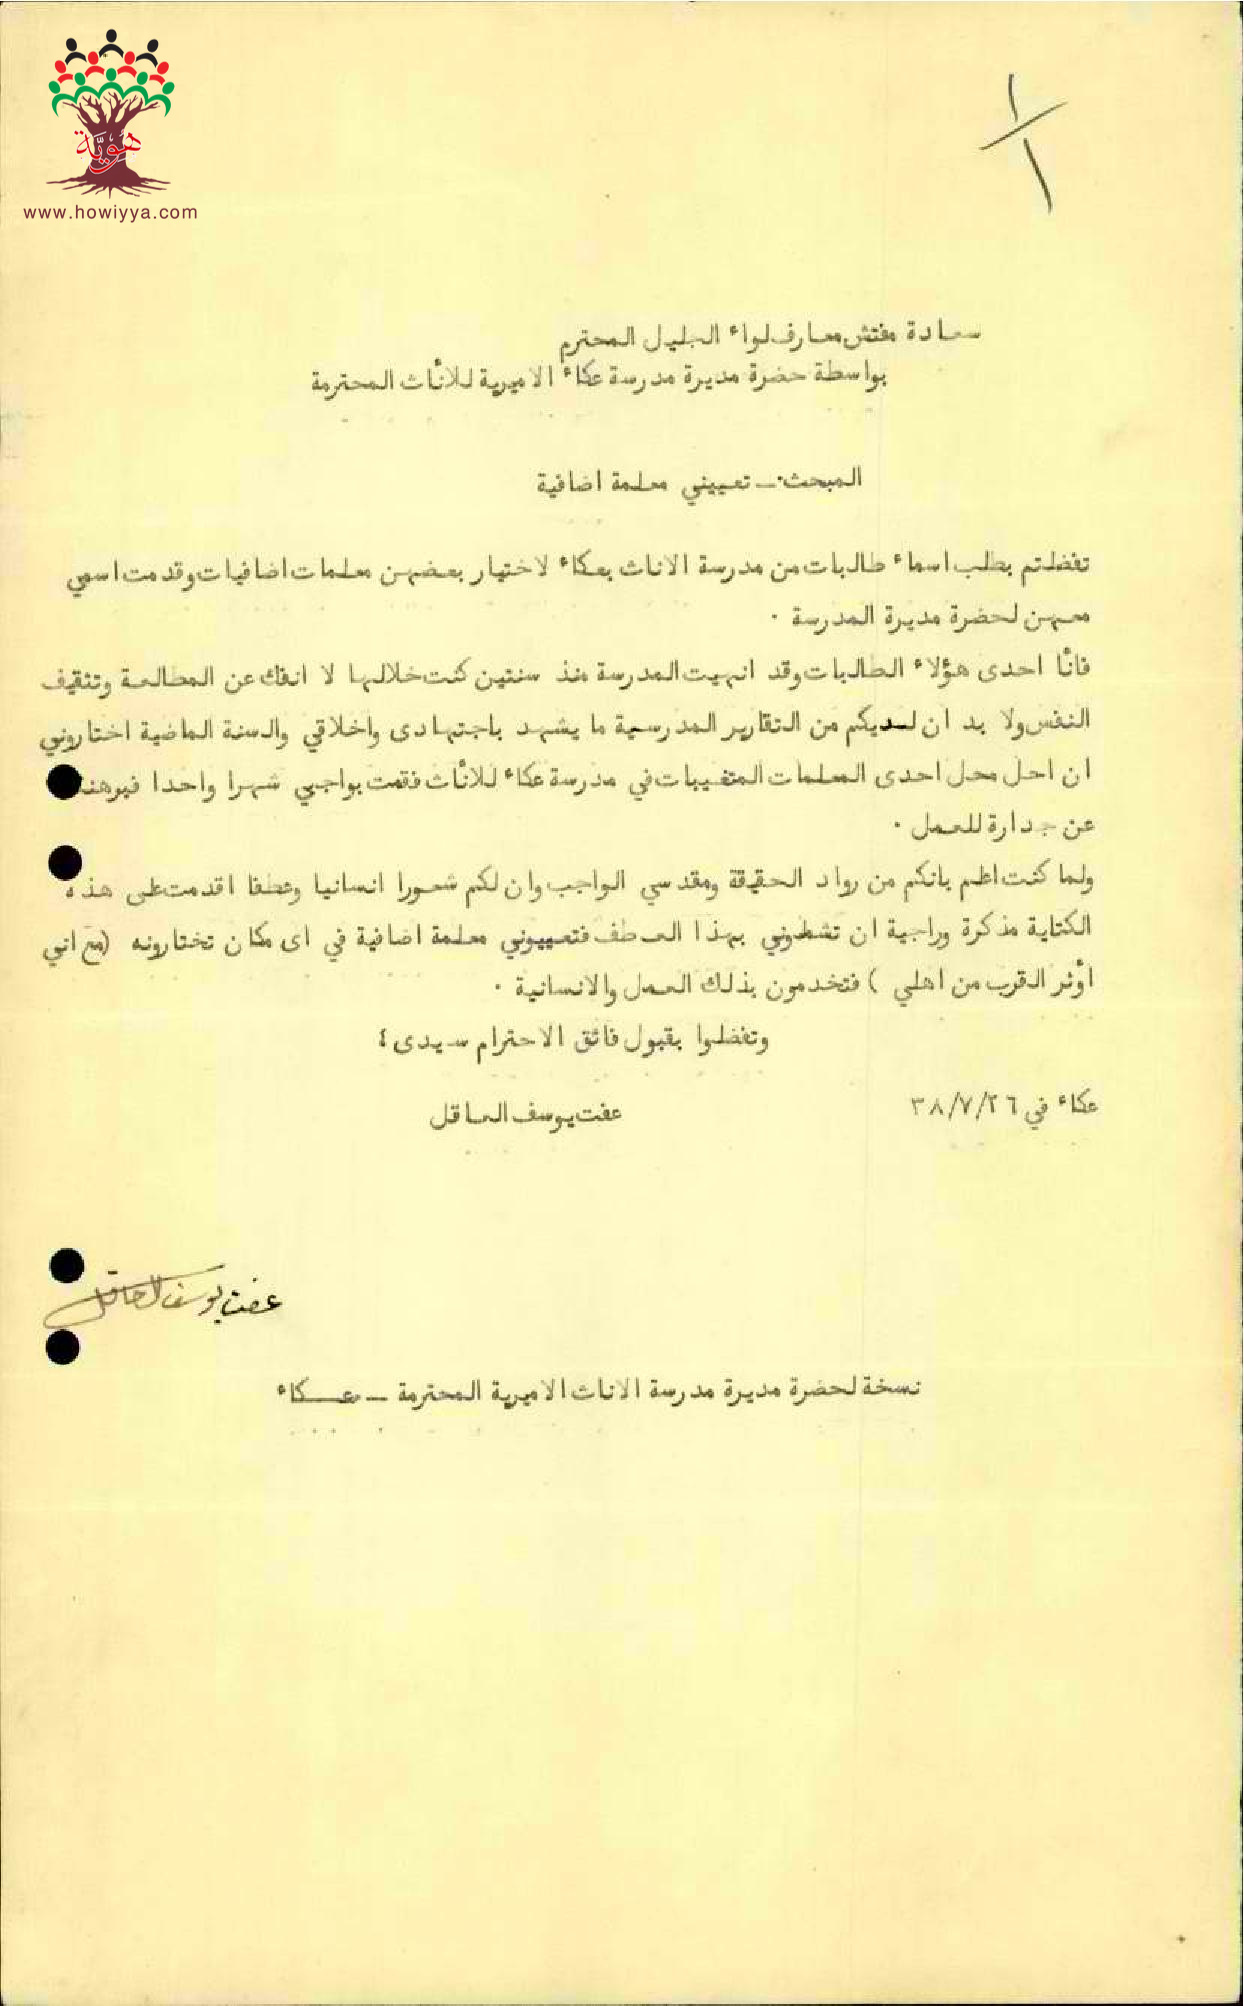 هوية
www.howiyya.com
سعادة مفتش معارف لواء الجليل المحترم
بواسطة حضرة مديرة مدرسة عكاء الاميرية للاناث المحترمة
المبحث :ـ تعييني معلمة اضافية
تفضلتم بطلب اسماء طالبات من مدرسة الاناث بعكاء لاختيار بعضهن معلمات اضافيات وقدمت اسمي
معهن لحضرة مديرة المدرسة .
فانا احدى هؤلاء الطالبات وقد انهيت المدرسة منذ سنتين كنت خلالها لا انفك عن المطالعة وتثقيف
النفس ولا بد ان لديكم من التقارير المدرسية ما يشهد باجتهادى واخلاقي والسنة الماضية اختاروني
ان احل محل احدى المعلمات المتغيبات في مدرسة عكاء للاناث فقمت بواجبي شهرا واحدا فبرهنت
عن جدارة للعمل .
ولما كنت اعلم بانكم من رواد الحقيقة ومقدسي الواجب وان لكم شعورا انسانيا وعطفا اقدمت على هذه
الكتابة مذكرة وراجية ان تشملوني بهذا العطف فتعييوني معلمة اضافية في اى مكان تختارونه (مع اني
اؤثر القرب من اهلي ) فتخدمون بذلك العمل والانسانية .
وتفضلوا بقبول فائق الاحترام سيدى ٤
عكاء في ٣٨/٧/٢٦
عفت يوسف العاقل
عفت يوسف العاقل
نسخة لحضرة مديرة مدرسة الاناث الاميرية المحترمة ـ عكاء